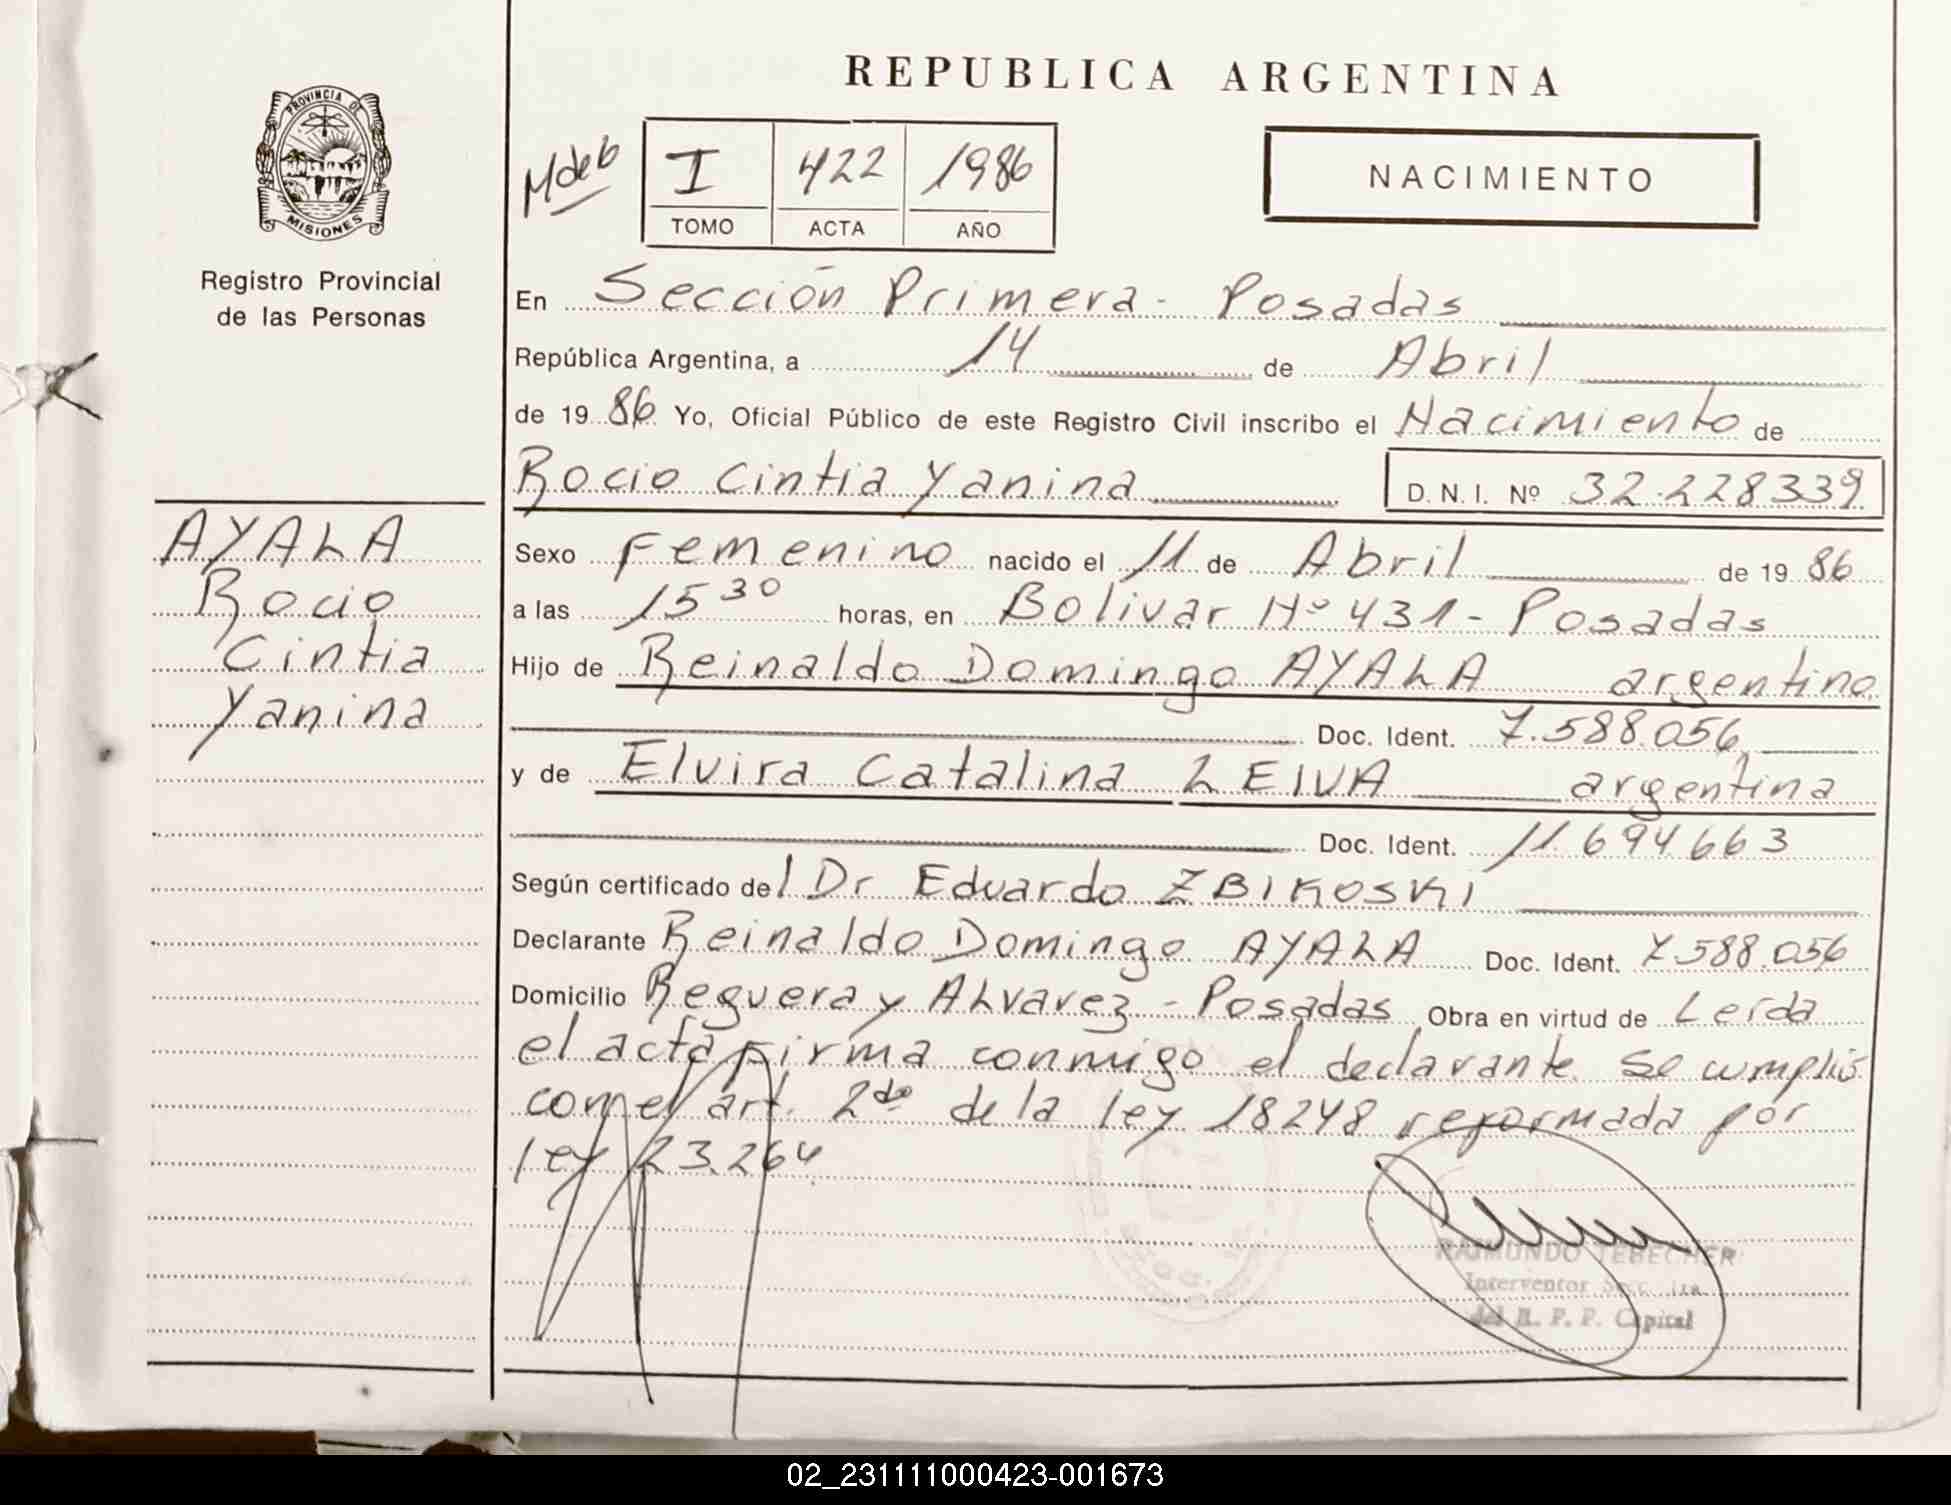 REPUBLICA ARGENTINA
PROVINCIA DE
MISIONES
Registro Provincial
de las Personas
I 422 1986
TOMO ACTA AÑO
NACIMIENTO
En Sección Primera - Posadas
República Argentina, a 14 de Abril
de 19 86 Yo, Oficial Público de este Registro Civil inscribo el Nacimiento de
Rocio Cintia Yanina D. N. I. Nº 32.228339
AYALA
Rocio
Cintia
Yanina
Sexo Femenino nacido el 11 de Abril de 19 86
a las 15 30 horas, en Bolivar Nº 431 - Posadas
Hijo de Reinaldo Domingo AYALA argentino
Doc. Ident. 7.588.056
y de Elvira Catalina LEIVA argentina
Doc. Ident. 11.694.663
Según certificado del Dr Eduardo ZBIKOSKI
Declarante Reinaldo Domingo AYALA Doc. Ident. 7.588.056
Domicilio Reguera y ALvarez - Posadas Obra en virtud de Leída
el acta firma conmigo el declarante se cumplió
con el art. 2do de la ley 18248 reformada por
ley 23.264
RAIMUNDO TEBECHER
Interventor Secc. 1ra
del R. P. P. Capital
02_231111000423-001673